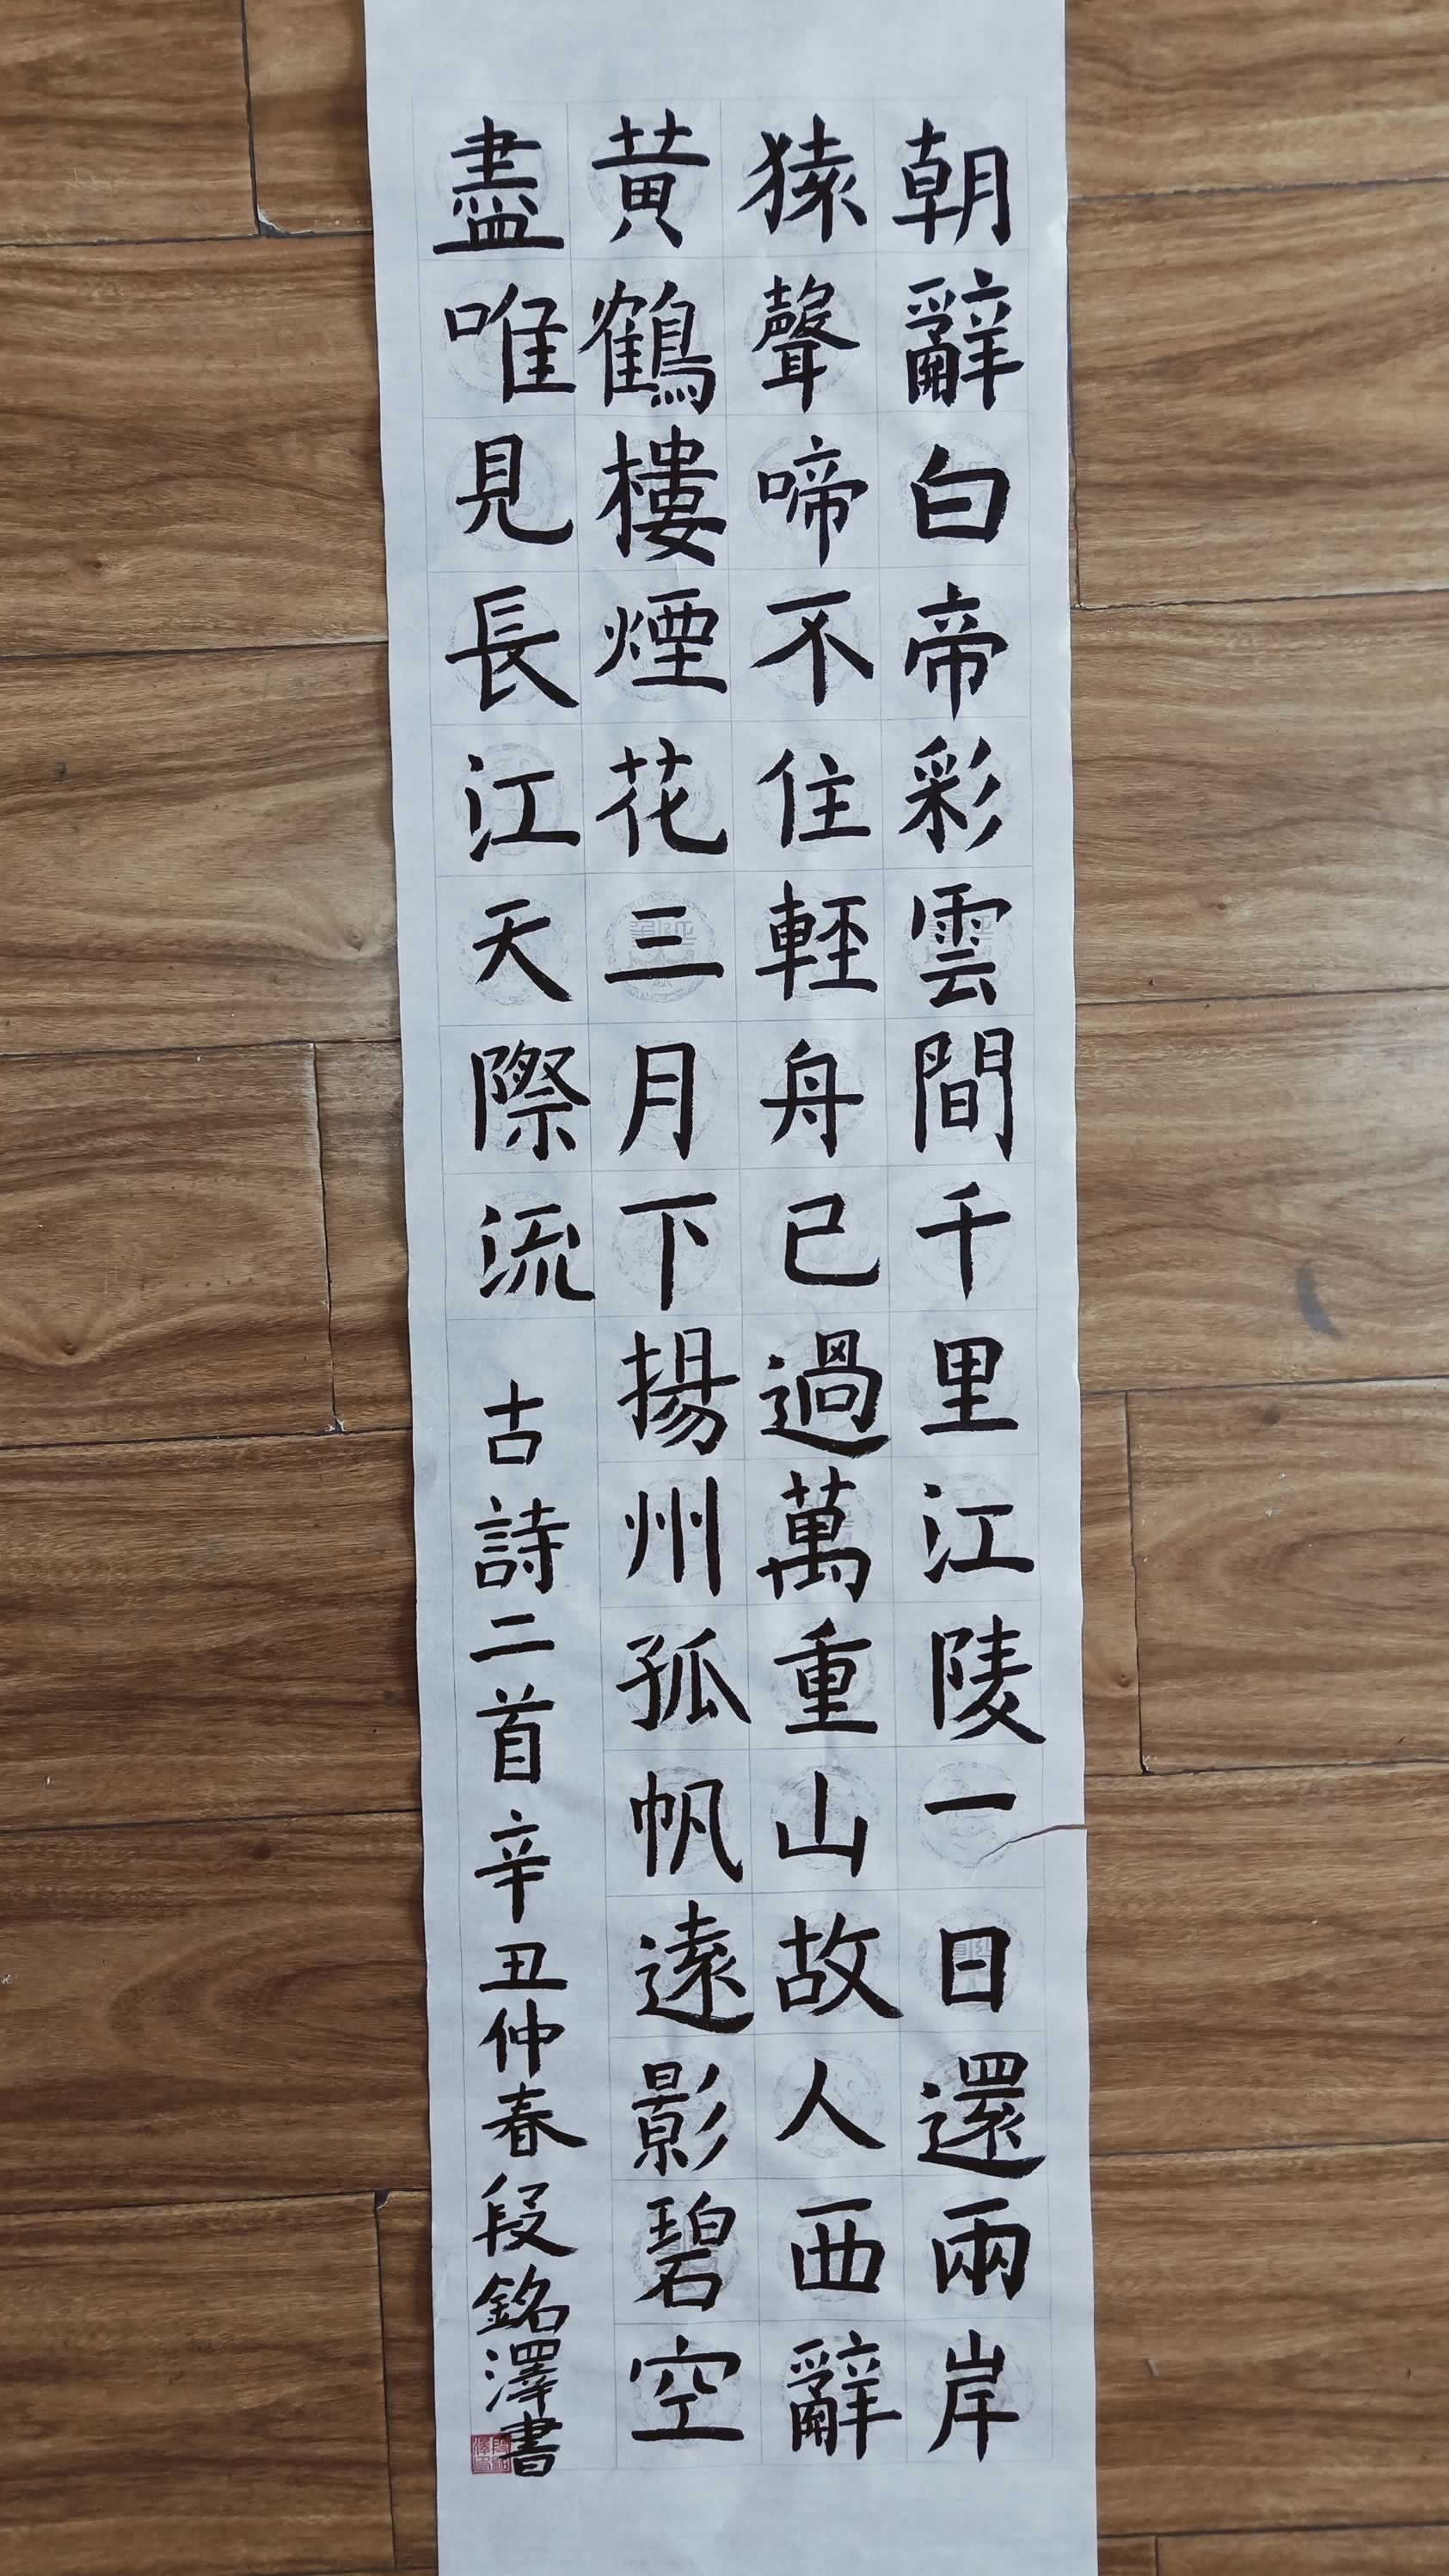 朝辭白帝彩雲間千里江陵一日還兩岸
猿聲啼不住輕舟已過萬重山故人西辭
黃鶴樓煙花三月下揚州孤帆遠影碧空
盡唯見長江天際流
古詩二首辛丑仲春段銘澤書